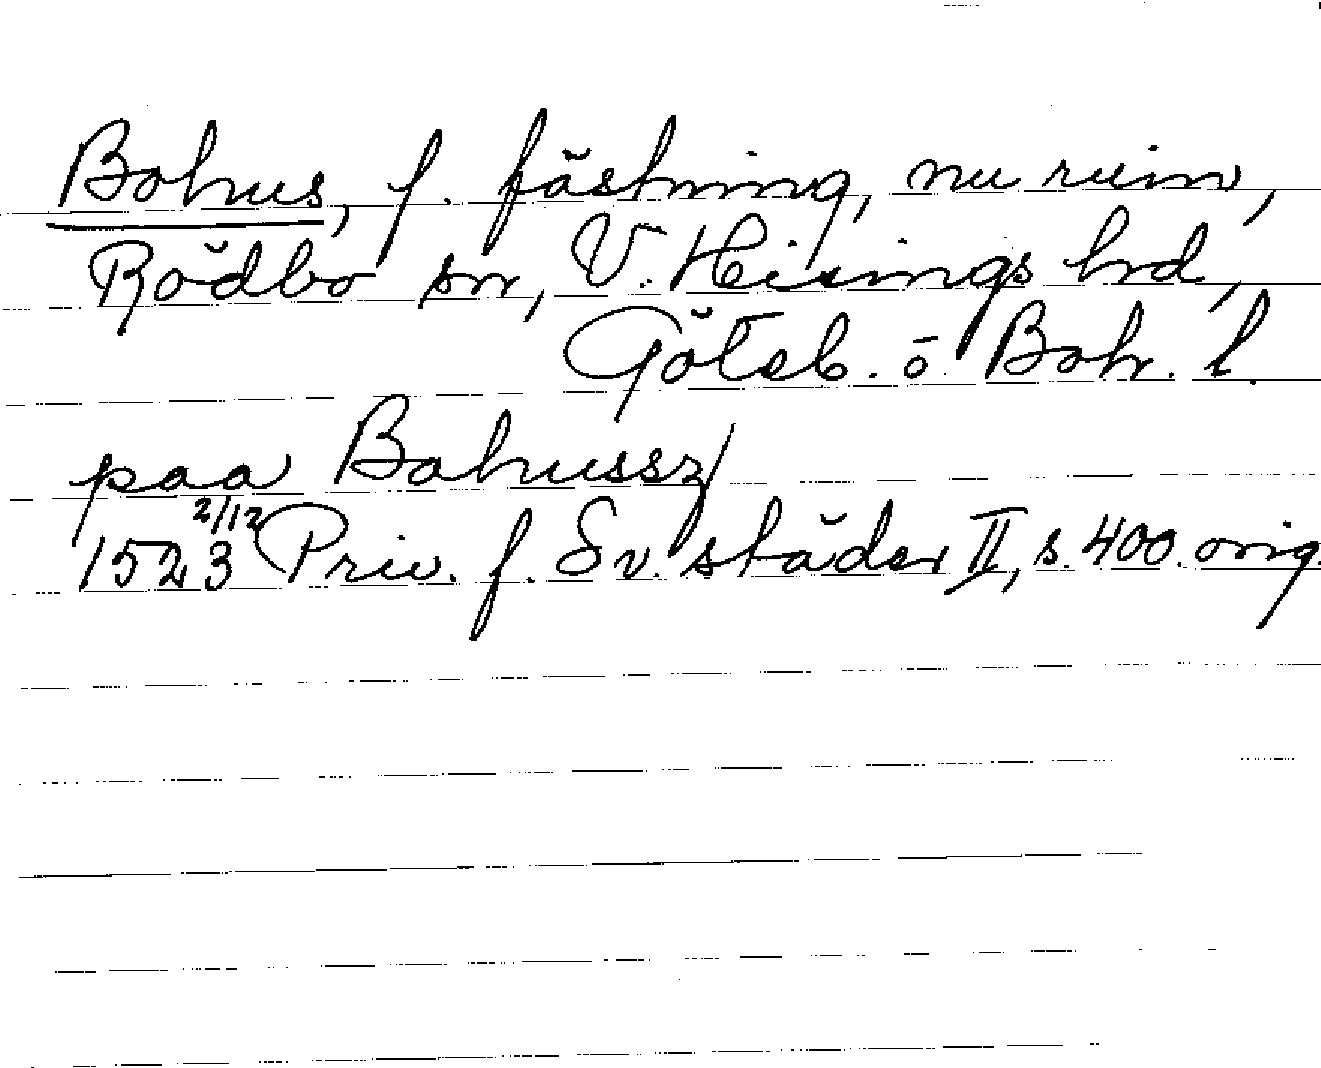 Bohus, f. fästning, nu ruin,
Rödbo sn, V. Hisings hd,
Göteb. o. Boh. l.
paa Bahussz
1523 2/12 Priv. f. Sv. städer II, s. 400. orig.